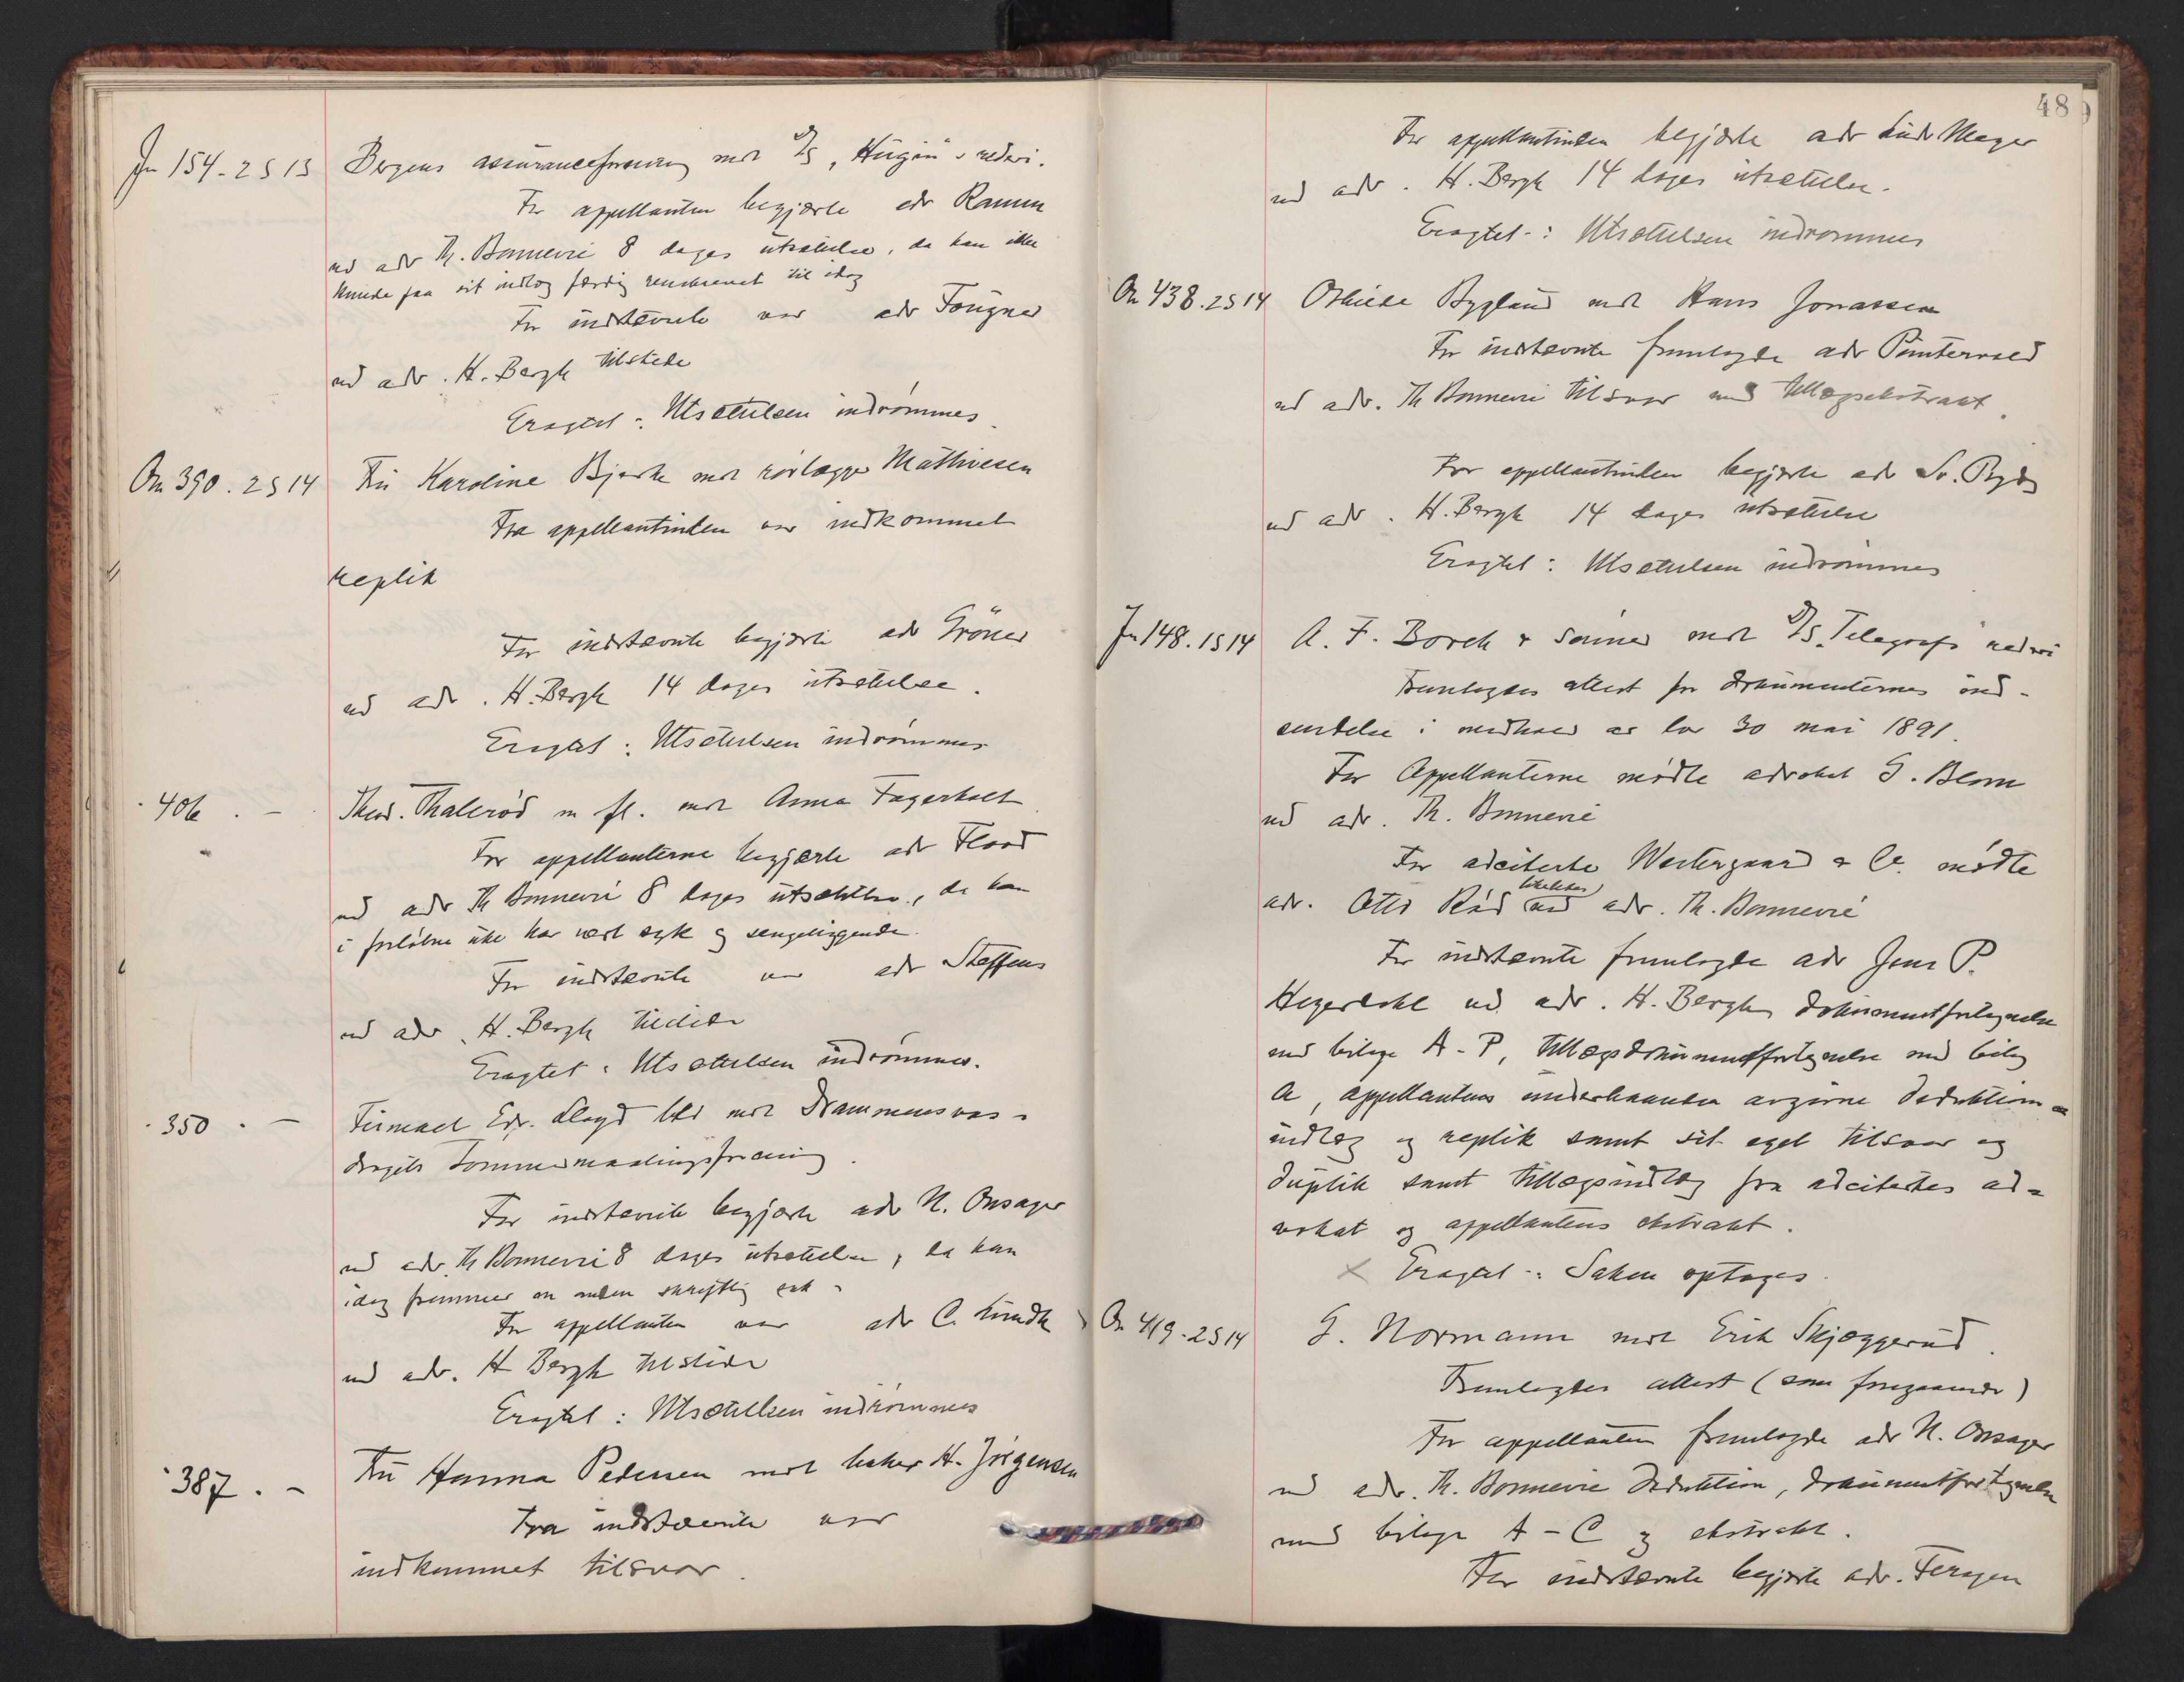 Jn 154. 2 S 13 Bergens assuranceforening mot D/S „Hugin"s rederi.
For appellanten begjærte adv Ramm
ved adv Th. Bonnevie 8 dages utsættelse, da han ikke
kunde faa sit indlæg færdig renskrevet til idag
For indstevnte var adv Fougner
ved adv. H. Bergh tilstede
Eragtet: Utsættelsen indrømmes.
On 390. 2 S 14 Fru Karoline Bjerke mot rørlægger Mathiesen
Fra appellantinden var indkommet
replik
For indstevnte begjærte adv Gröner
ved adv. H. Bergh 14 dages utsættelse.
Eragtet: Utsættelsen indrømmes
406. - Theod. Thalerød m fl. mot Anna Fagerholt
For appellanterne begjærte adv Flood
ved adv Th Bonnevie 8 dages utsættelse, da han
i forløbne uke har vært syk og sengeliggende.
For indstevnte var adv Steffens
ved adv. H. Bergh tilstede
Eragtet: Utsættelsen indrømmes.
350. - Firmaet Edv. Lloyd Ltd mot Drammensvas-
dragets Tømmermaalingsforening.
For indstevnte begjærte adv N. Onsager
ved adv. Th Bonnevie 8 dages utsættelse, da han
idag fremmer en anden skriftlig sak
For appellanten var adv C. Lundh
ved adv. H Bergh tilstede
Eragtet: Utsættelsen indrømmes
387. - Fru Hanna Pedersen mot baker H. Jörgensen
Fra indstevnte var
indkommet tilsvar.
48
For appellantinden begjærte adv Lud. Meyer
ved adv. H. Bergh 14 dages utsættelse.
Eragtet: Utsættelsen indrømmes
On 438. 2 S 14 Othilde Bygland mot Hans Jonassen
For indstevnte fremlagde adv Pintervold
ved adv. Th Bonnevie tilsvar med tillægsekstrakt.
For appellantinden begjærte adv Sv. Ryd
ved adv. H. Bergh 14 dages utsættelse
Eragtet: Utsættelsen indrømmes
Jn 148. 1 S 14 A. F. Borch & Sønner mot D/S „Telegraf"s rederi
Fremlagdes attest for dokumenternes ind-
sendelse i medhold av lov 30 mai 1891.
For Appellanterne mødte advokat G. Blom
ved adv. Th. Bonnevie
For adciterte Westergaard & Co. mødte
adv. Otto Rød likeledes ved adv. Th. Bonnevie
For indstevnte fremlagde adv Jens P.
Heyerdahl ved adv. H. Bergh dokumentfortegnelse
med bilage A-P, tillægsdokumentfortegnelse med bilag
A, appellantens underhaanden avgivne deduktion,
indlæg og replik samt sit eget tilsvar og
duplik samt tillægsindlæg fra adcitertes ad-
vokat og appellantens ekstrakt.
x Eragtet: Saken optages.
On 419. 2 S 14 G. Normann mot Erik Skjæggerud.
Fremlagdes attest (som foregaaende)
For appellanten fremlagde adv N. Onsager
ved adv. Th. Bonnevie deduktion, dokumentfortegnelse
med bilage A-C og ekstrakt.
For indstevnte begjærte adv. Feragen